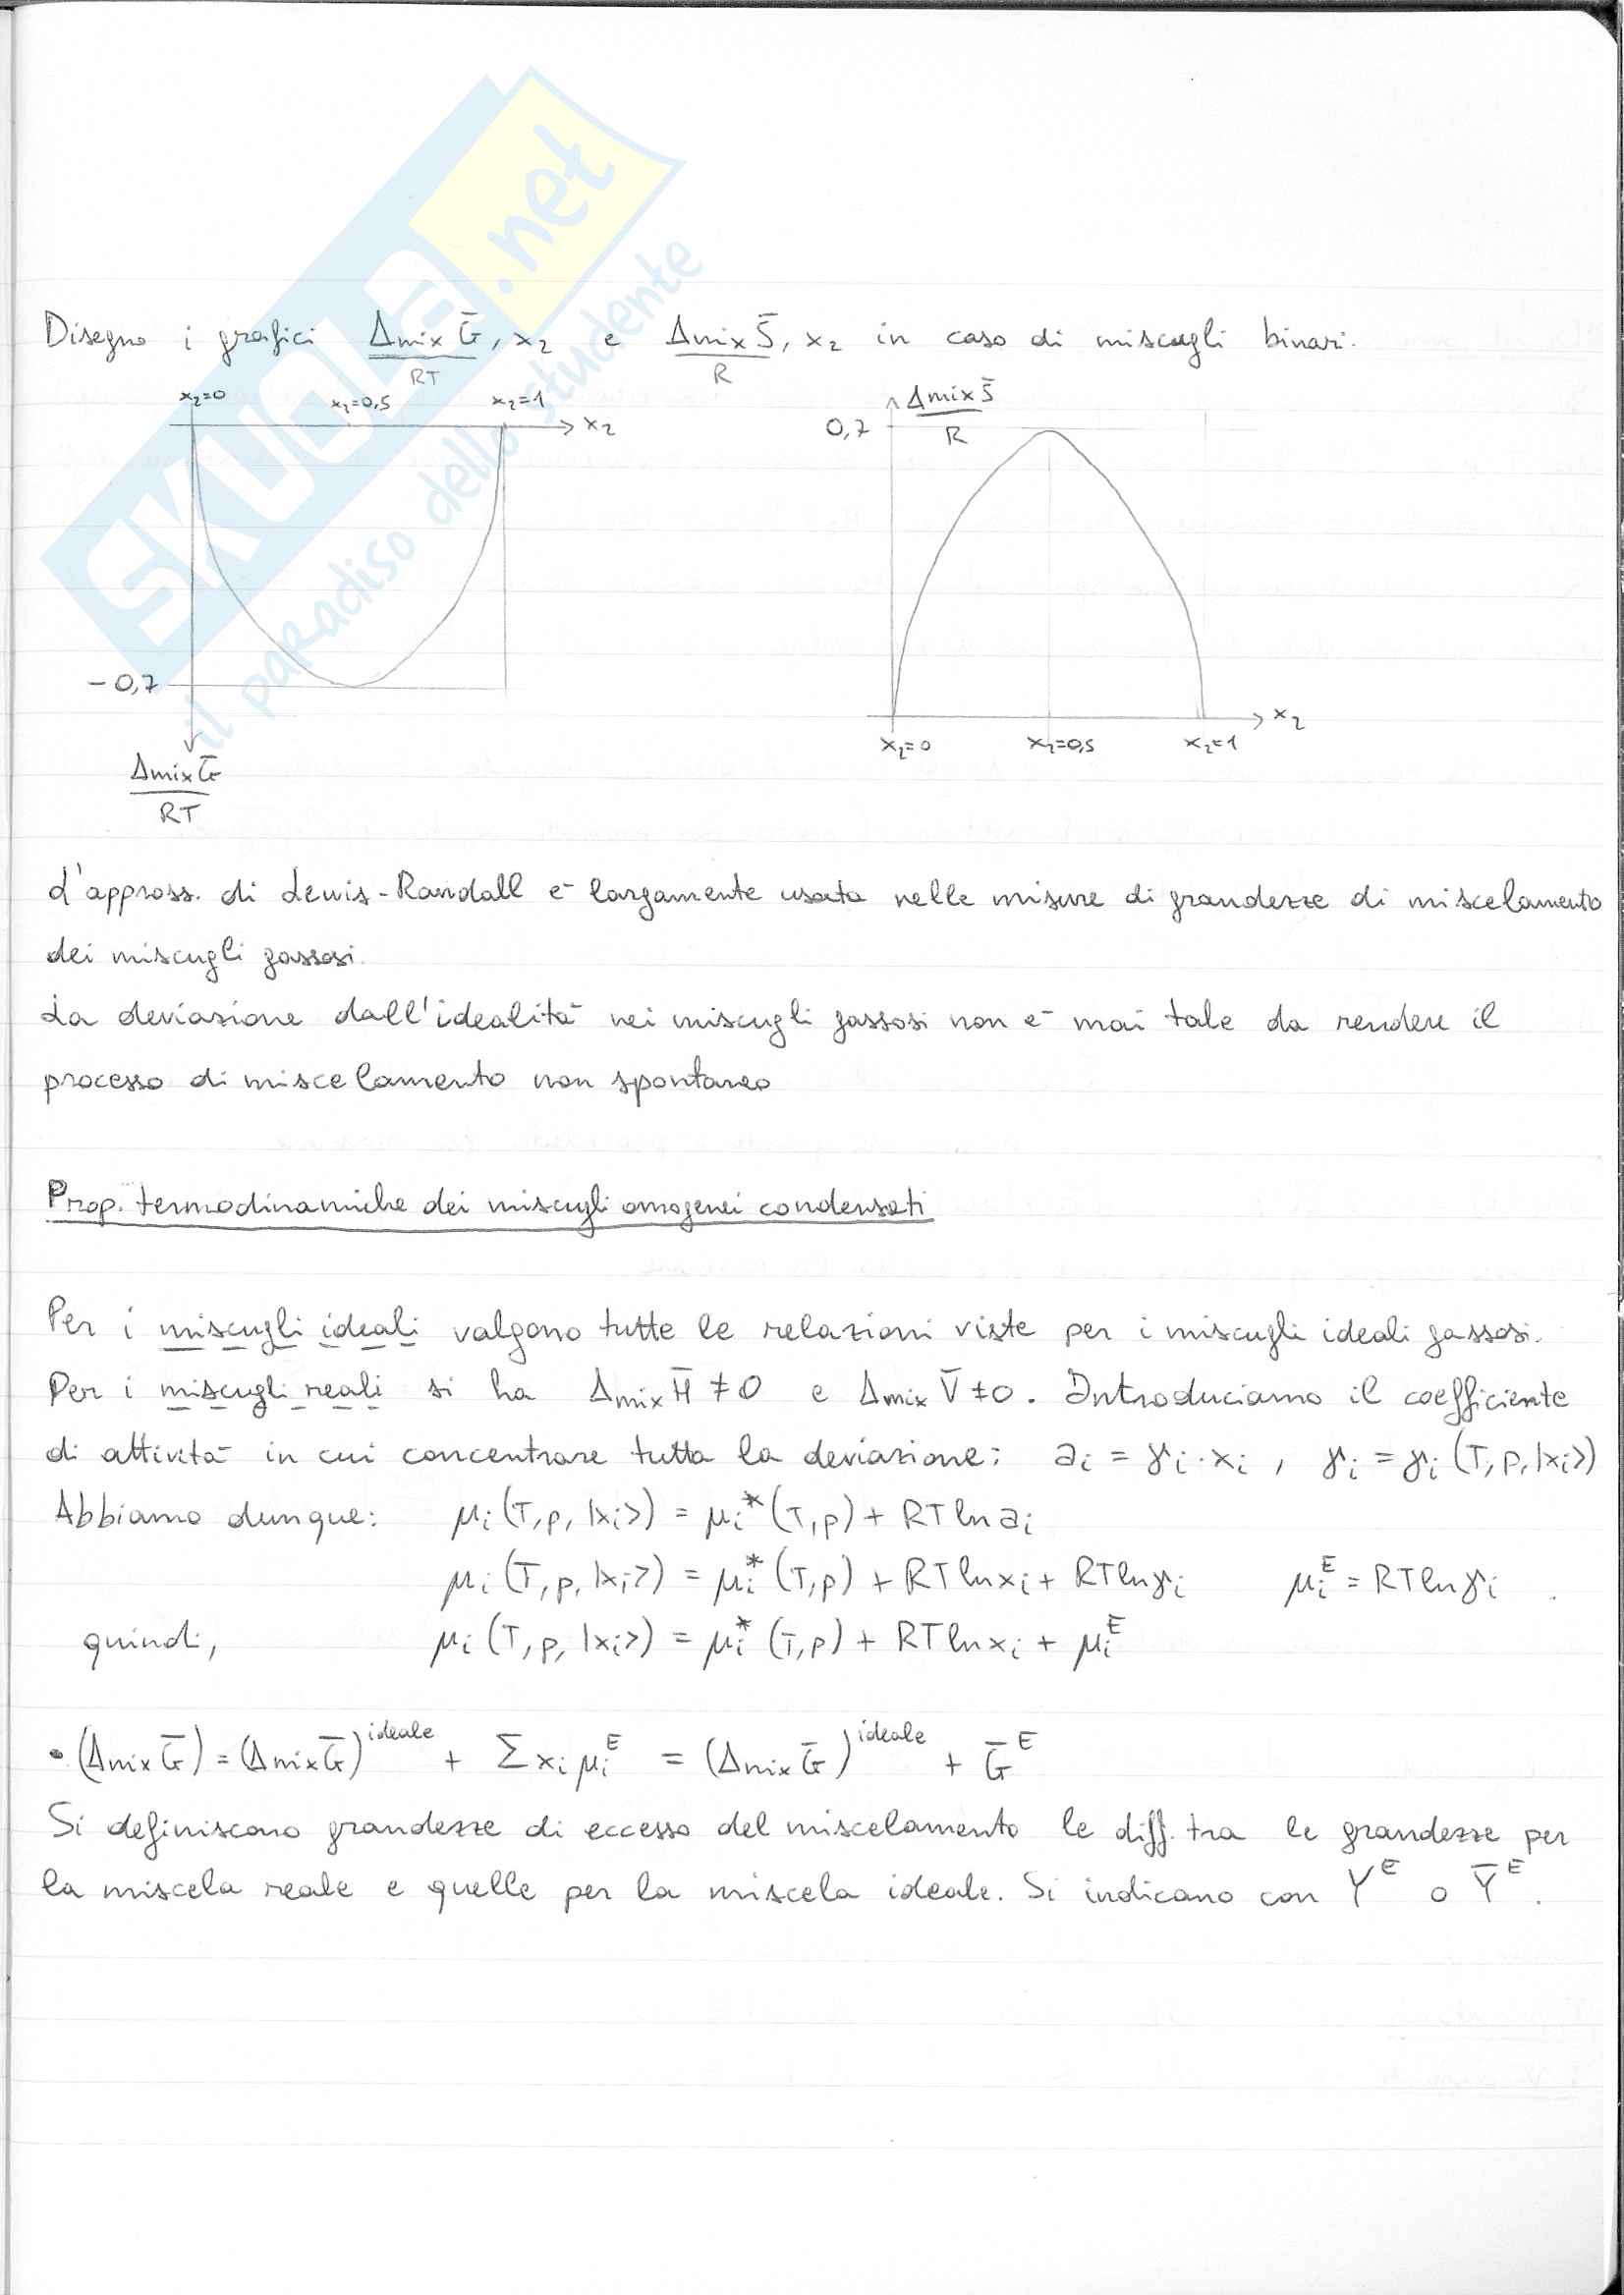 SKUOLA.net
il paradiso dello studente
Disegno i grafici Δmix G̅/RT, x₂ e Δmix S̅/R, x₂ in caso di miscugli binari.
x₂=0 x₂=0,5 x₂=1
x₂
-0,7
Δmix G̅/RT
Δmix S̅/R
0,7
x₂
x₂=0 x₂=0,5 x₂=1
L'appross. di Lewis-Randall è largamente usata nelle misure di grandezze di miscelamento
dei miscugli gassosi.
La deviazione dall'idealità nei miscugli gassosi non è mai tale da rendere il
processo di miscelamento non spontaneo
Prop. termodinamiche dei miscugli omogenei condensati
Per i miscugli ideali valgono tutte le relazioni viste per i miscugli ideali gassosi.
Per i miscugli reali si ha Δmix H̅ ≠ 0 e Δmix V̅ ≠ 0. Introduciamo il coefficiente
di attività in cui concentrare tutta la deviazione: aᵢ = γᵢ·xᵢ , γᵢ = γᵢ(T, p, |xᵢ>)
Abbiamo dunque: μᵢ(T, p, |xᵢ>) = μᵢ*(T, p) + RT ln aᵢ
μᵢ(T, p, |xᵢ>) = μᵢ*(T, p) + RT ln xᵢ + RT ln γᵢ μᵢᴱ = RT ln γᵢ .
quindi, μᵢ(T, p, |xᵢ>) = μᵢ*(T, p) + RT ln xᵢ + μᵢᴱ
• (Δmix G̅) = (Δmix G̅)^ideale + Σ xᵢ μᵢᴱ = (Δmix G̅)^ideale + G̅ᴱ
Si definiscono grandezze di eccesso del miscelamento le diff. tra le grandezze per
la miscela reale e quelle per la miscela ideale. Si indicano con Yᴱ o Y̅ᴱ.